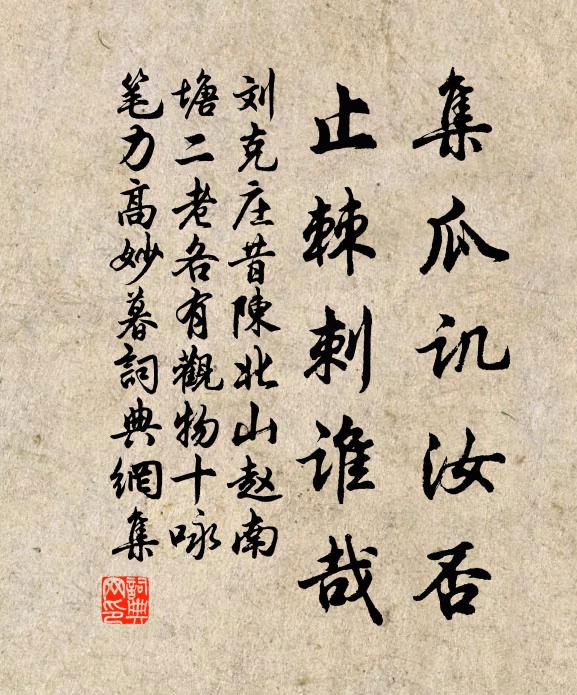 集瓜讥汝否
止棘刺谁哉
刘克庄昔陳北山赵南
塘二老各有觀物十咏
笔力高妙暮詞典網集
詞典
网印